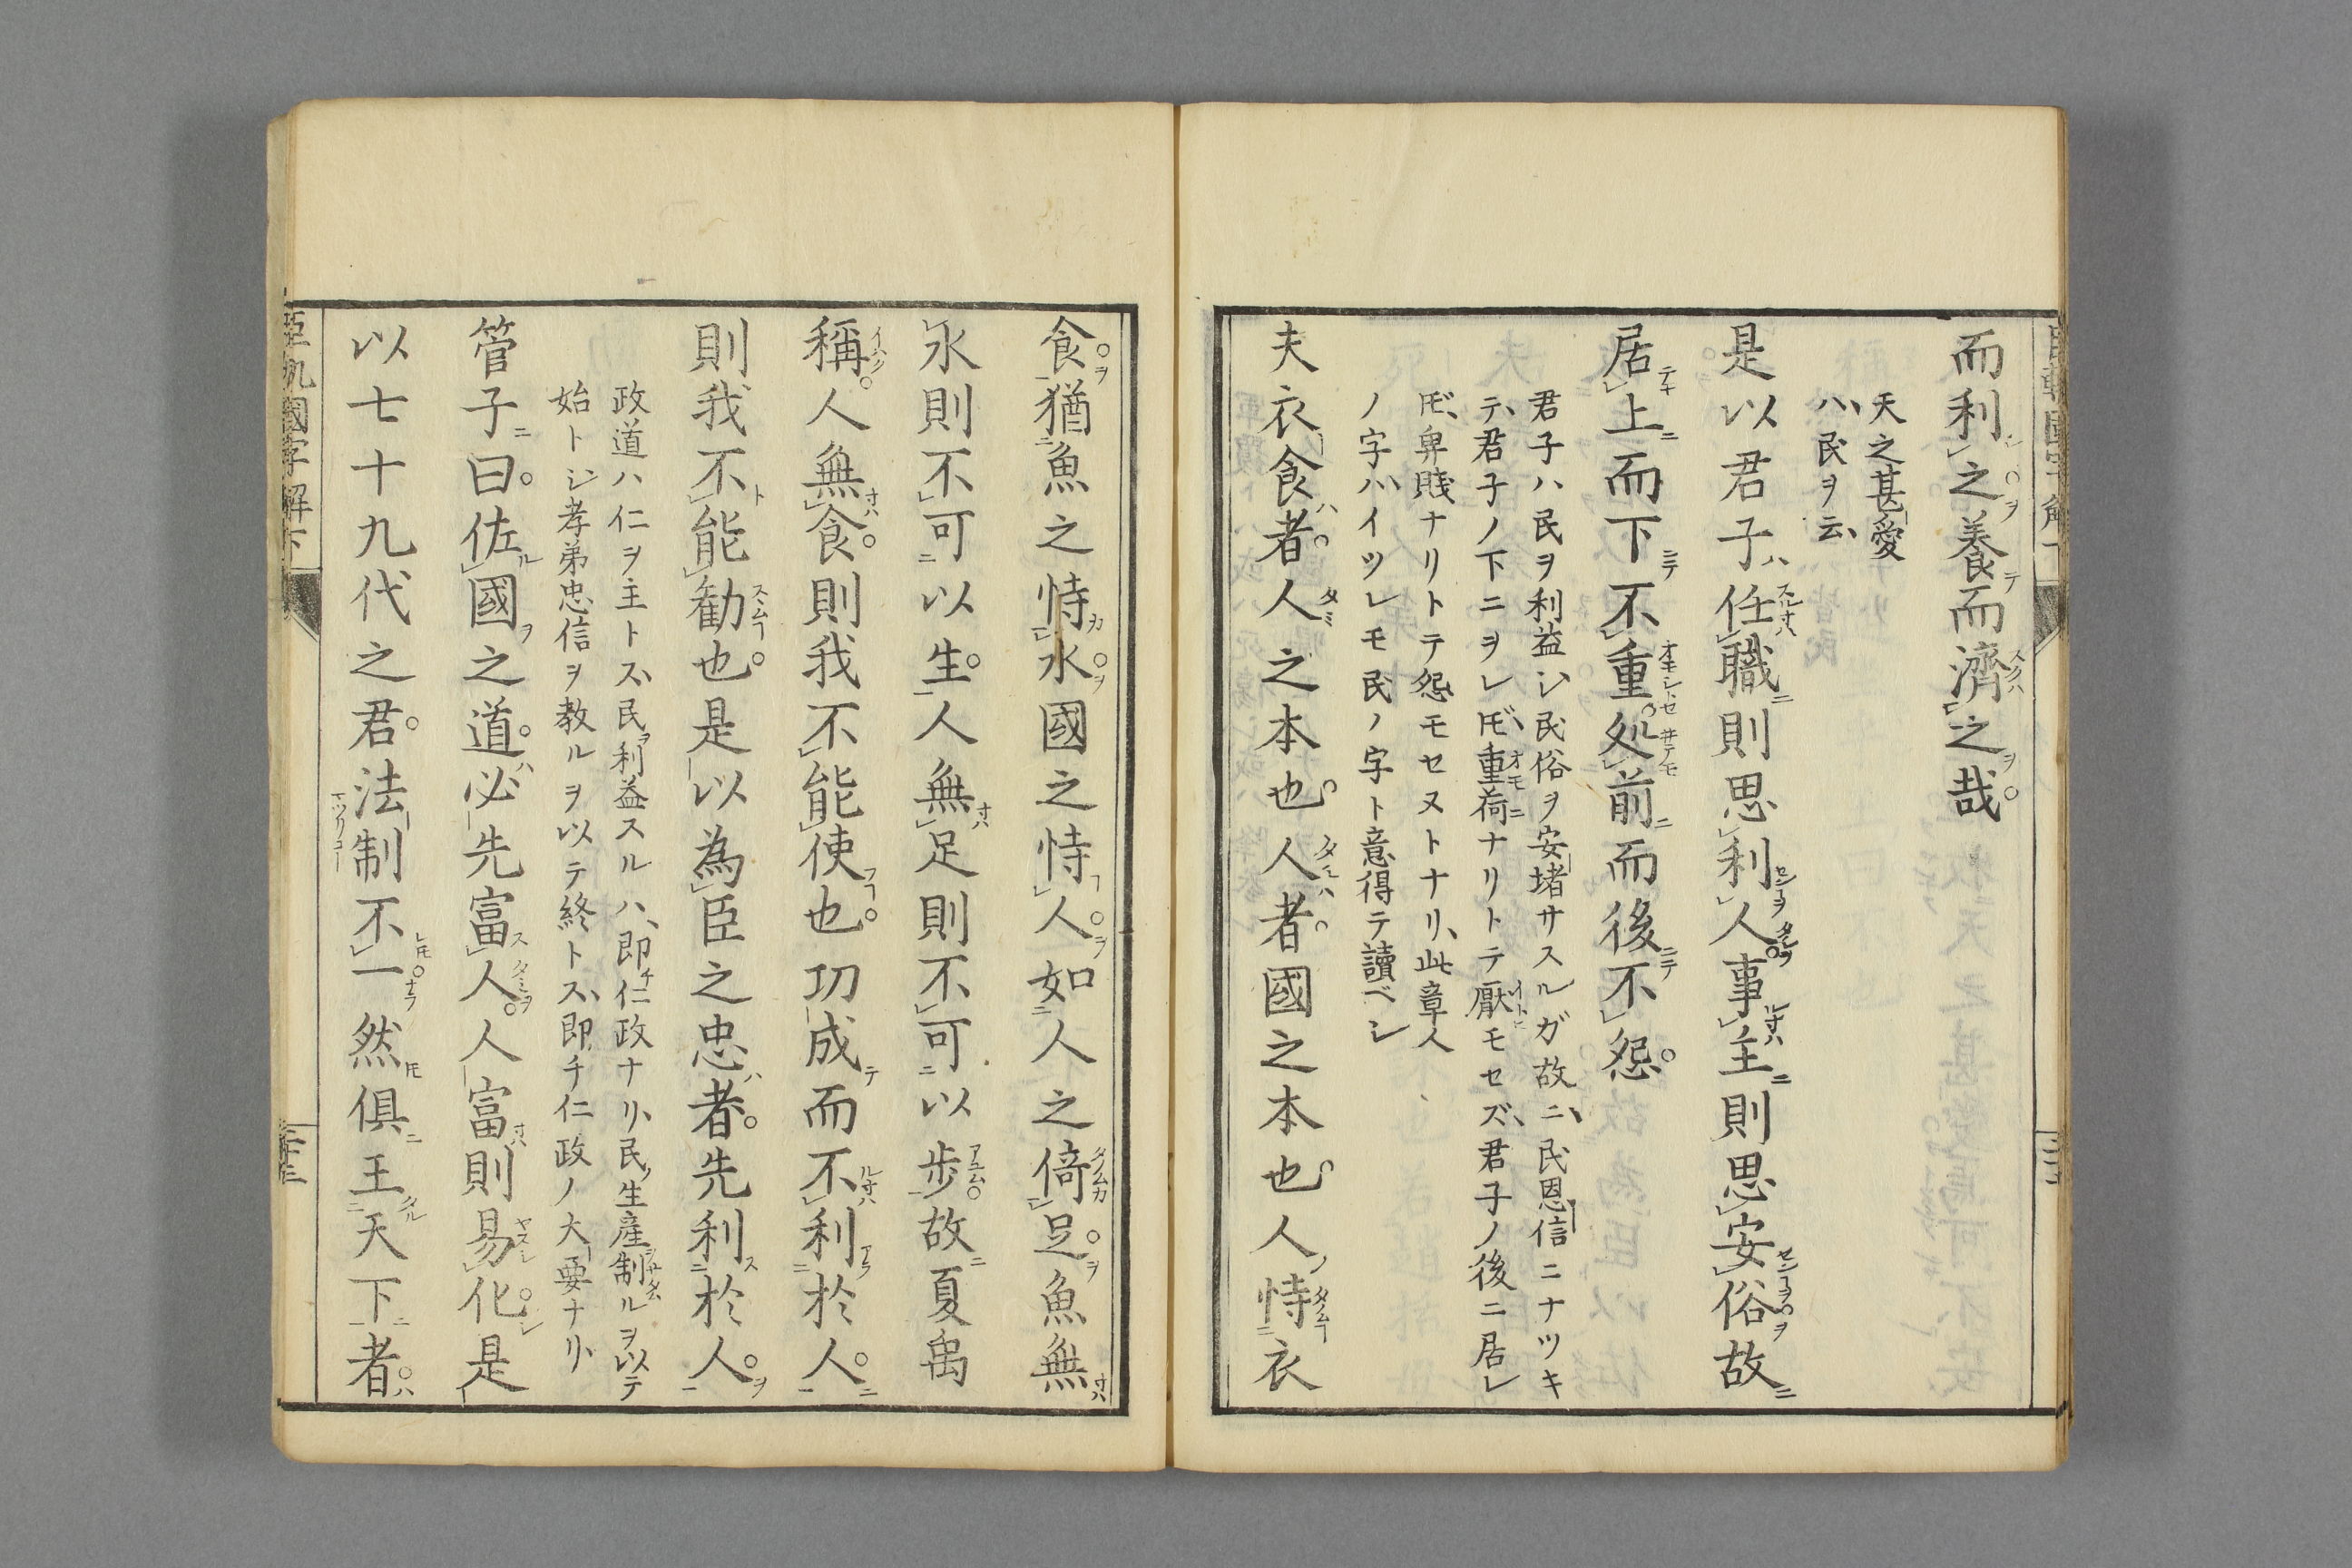 而利之養而濟之哉
天之甚愛
ハ、民ヲ云、
是以君子任職則思利人事主則思安俗故
居上而下不重処前而後不怨
君子ハ民ヲ利益シ、民俗ヲ安堵サスルガ故ニ、民恩信ニナツキ
テ、君子ノ下ニヲレ𪜈、重荷ナリトテ厭モセズ、君子ノ後ニ居レ
𪜈、卑賤ナリトテ怨モセヌトナリ、此章人
ノ字ハ、イツレモ民ノ字ト意得テ讀ベシ
夫衣食者人之本也人者國之本也人恃衣
食猶魚之恃水國之恃人如人之倚足魚無
水則不可以生人無足則不可以歩故夏禹
稱人無食則我不能使也功成而不利於人
則我不能勧也是以為臣之忠者先利於人
政道ハ仁ヲ主トス、民ヲ利益スルハ、即チ仁政ナリ、民ノ生産制ルヲ以テ
始トシ、孝弟忠信ヲ教ルヲ以テ終トス、即チ仁政ノ大要ナリ、
管子曰佐國之道必先富人人富則易化是
以七十九代之君法制不一然俱王天下者
臣軌國字解下